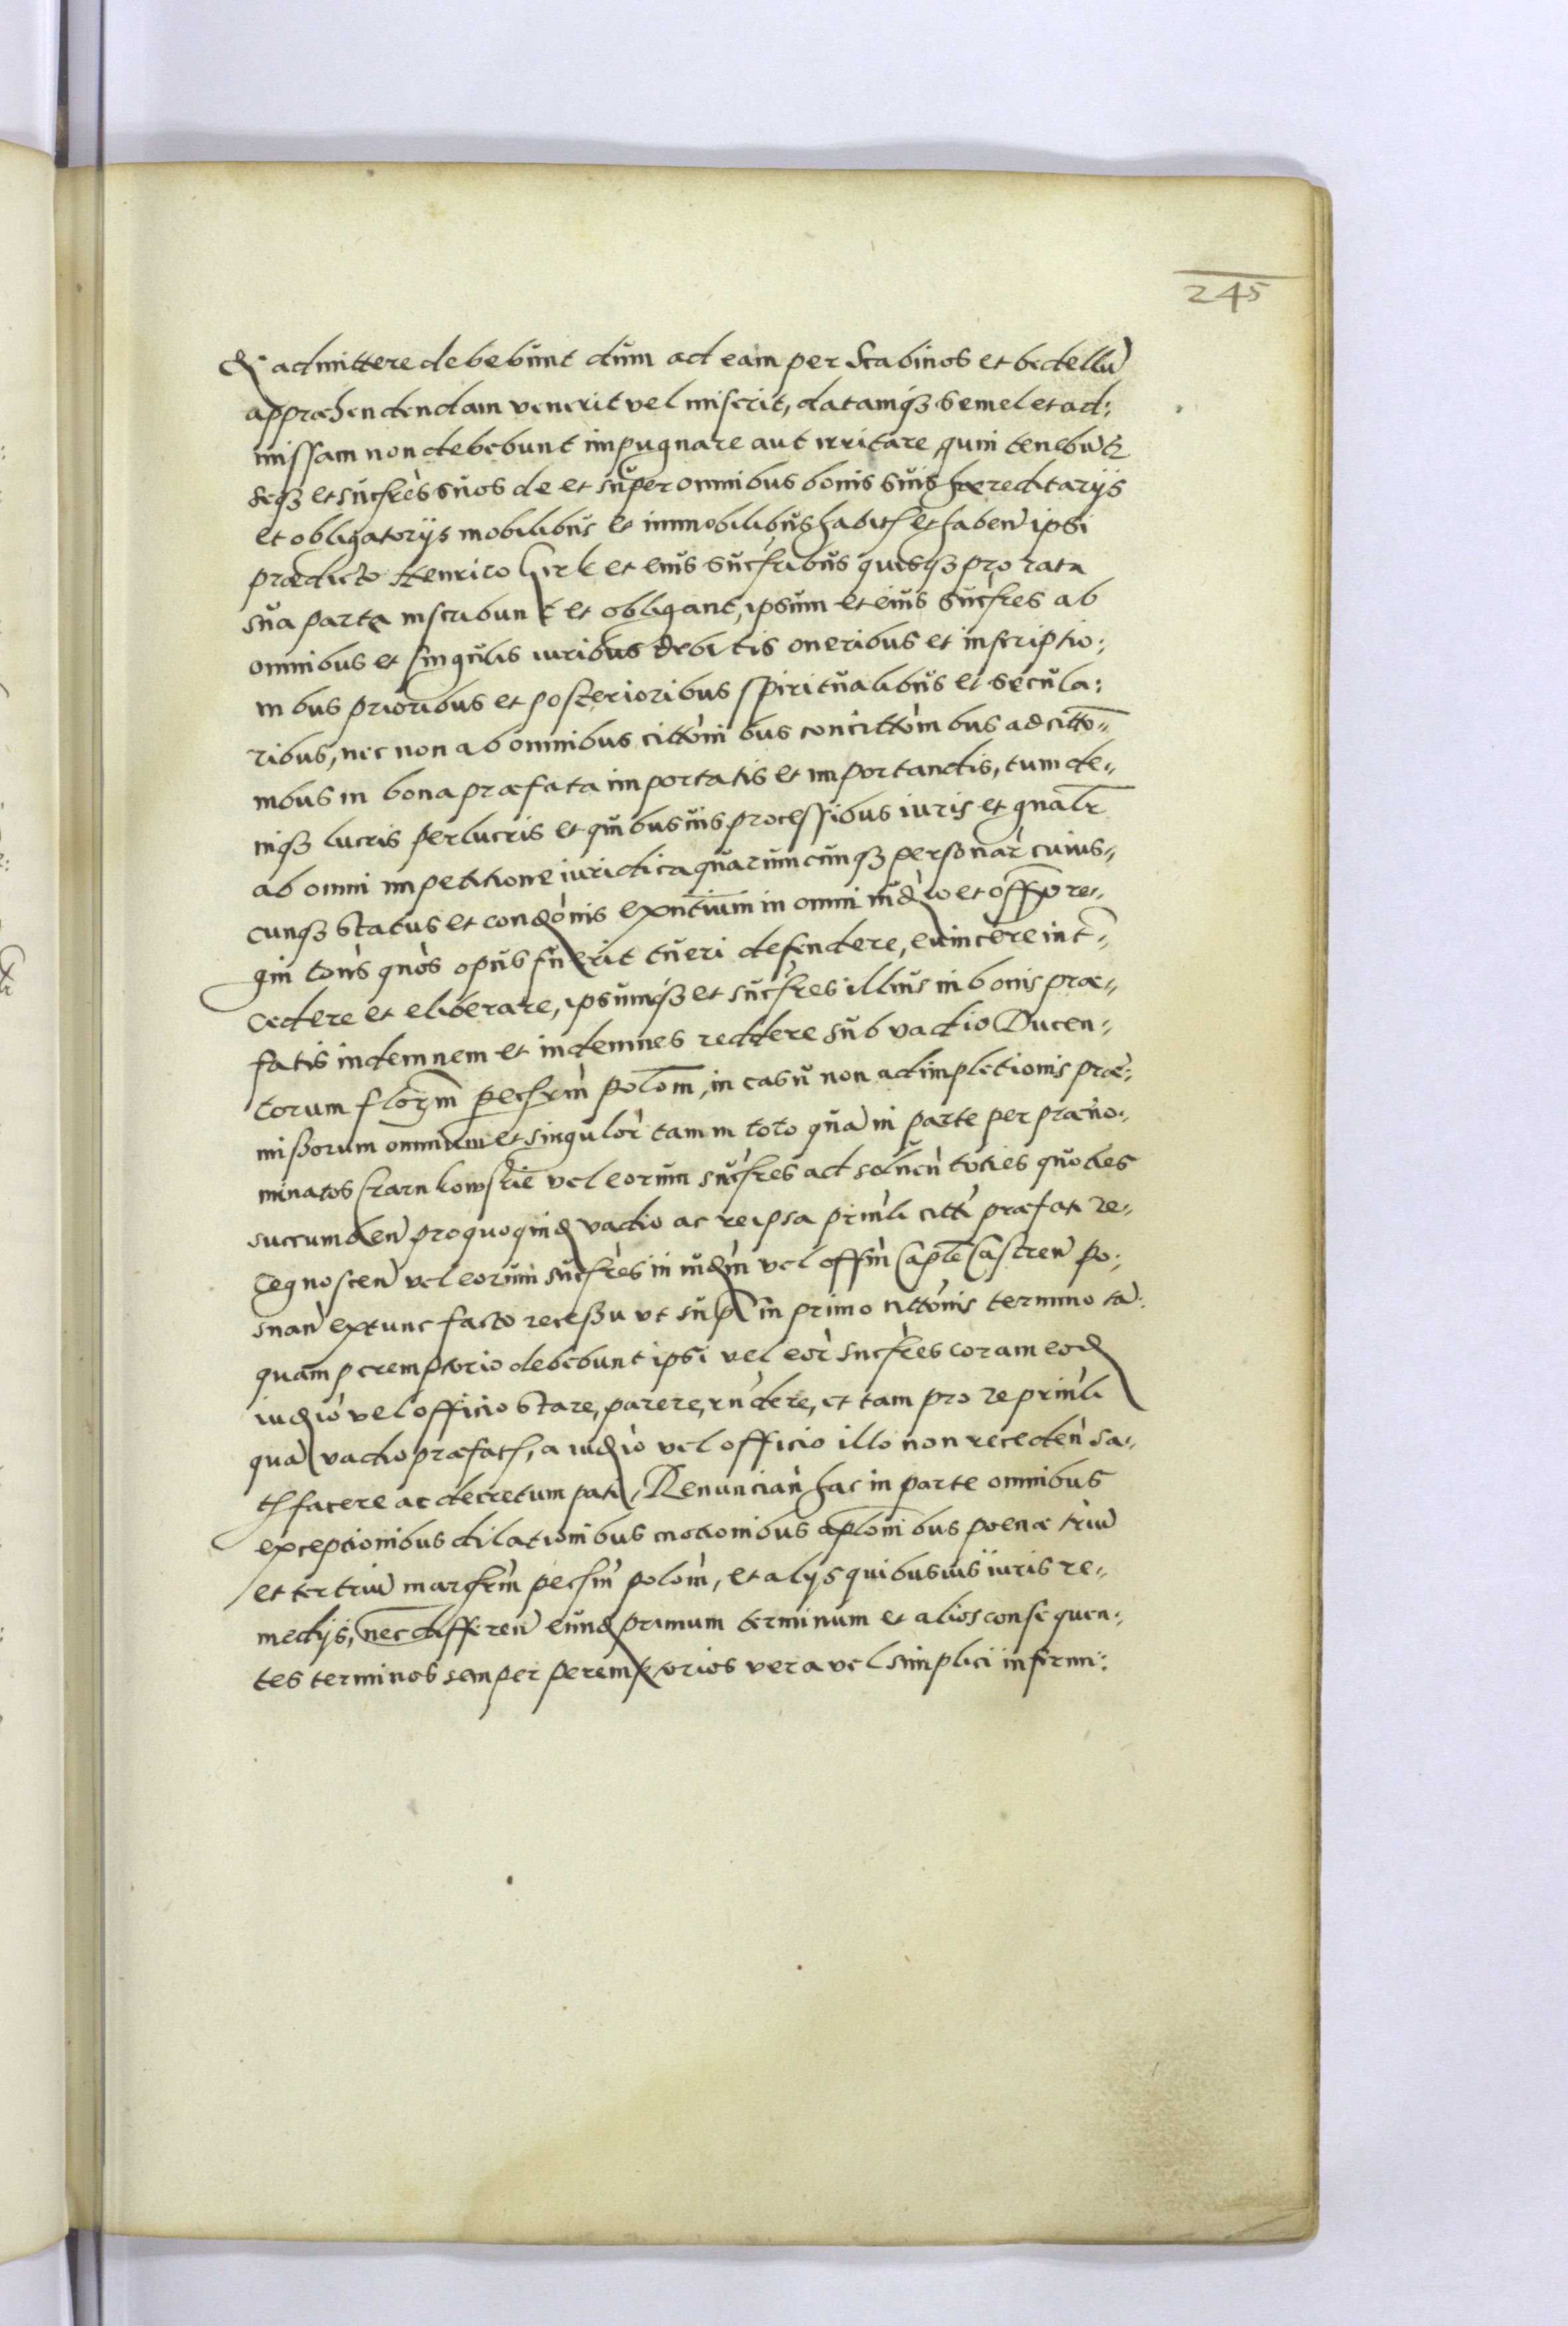 245
& admittere debebunt dum ad eam per Scabinos et bedellũ
appræhendendam venerit vel miserit, datamq3 semel et ad:
missam non debebunt impugnare aut irritare, quin tenebũtr
seq3 et sucẽres suos de et super omnibus bonis suis hæreditariis
et obligatoriis mobilibus et immobilibus habit et haben̄ ipsi
prædicto Henrico Girk et eius sucẽribus quisq3 pro rata
sua parte inscribunt et obligant, ipsum et eius sucẽres ab
omnibus et singulis iuribus debitis oneribus et inscriptio:
nibus prioribus et posterioribus spiritualibus et secula:
ribus, nec non ab omnibus cittõnibus concittõnibus adcittõ=
nibus in bona præfata importatis et importandis, tum de=
niq3 lucris perlucris et quibusuis processibus iuris et gnãlr
ab omni impetitione iuridica quarumcunq3 personar̃ cuius=
cunq3 status et condõnis exñtium in omni iudõ et off re=
gni toũs quõs opus fuerit tueri defendere, euincere int=
cedere et eliberare, ipsumq3 et sucẽres illius in bonis præ=
fatis indemnem et indemnes reddere sub vadio Ducen:
torum florm̃ pecnrm̃ polom̃, in casu non adimpletionis præ:
missorum omnium et singulor̃ tam in toto quã in parte per præno:
minatos Czarnkowskie vel eorum sucẽres ad soluen̄ toties quoties
succumben̄ pro quoquid vadio ac re ipsa prinli citti præfati re=
cognoscen̄ vel eorum sucẽres in iudm̃ vel offm̃ Caple Castren̄ po:
snan̄ extunc facto recessu ut supᵃ in primo cittõnis termino tã:
quam peremptorio debebunt ipsi vel eor̃ sucẽres coram eod
iudio vel officio stare, parere, rñdere, et tam pro re prinli
quã vadio præfat, a iudio vel officio illo non receden̄ sa:
tfacere ac decretum pati, Renuncian̄ hac in parte omnibus
exceptionibus dilationibus motionibus aplõnibus poenæ triũ
et ter triũ marcrm̃ pecrm̃ polom̃, et aliis quibusuis iuris re=
mediis, nec differen̄ eund primum terminum et alios consequen:
tes terminos semper peremptorios vera vel simplici infirmi: